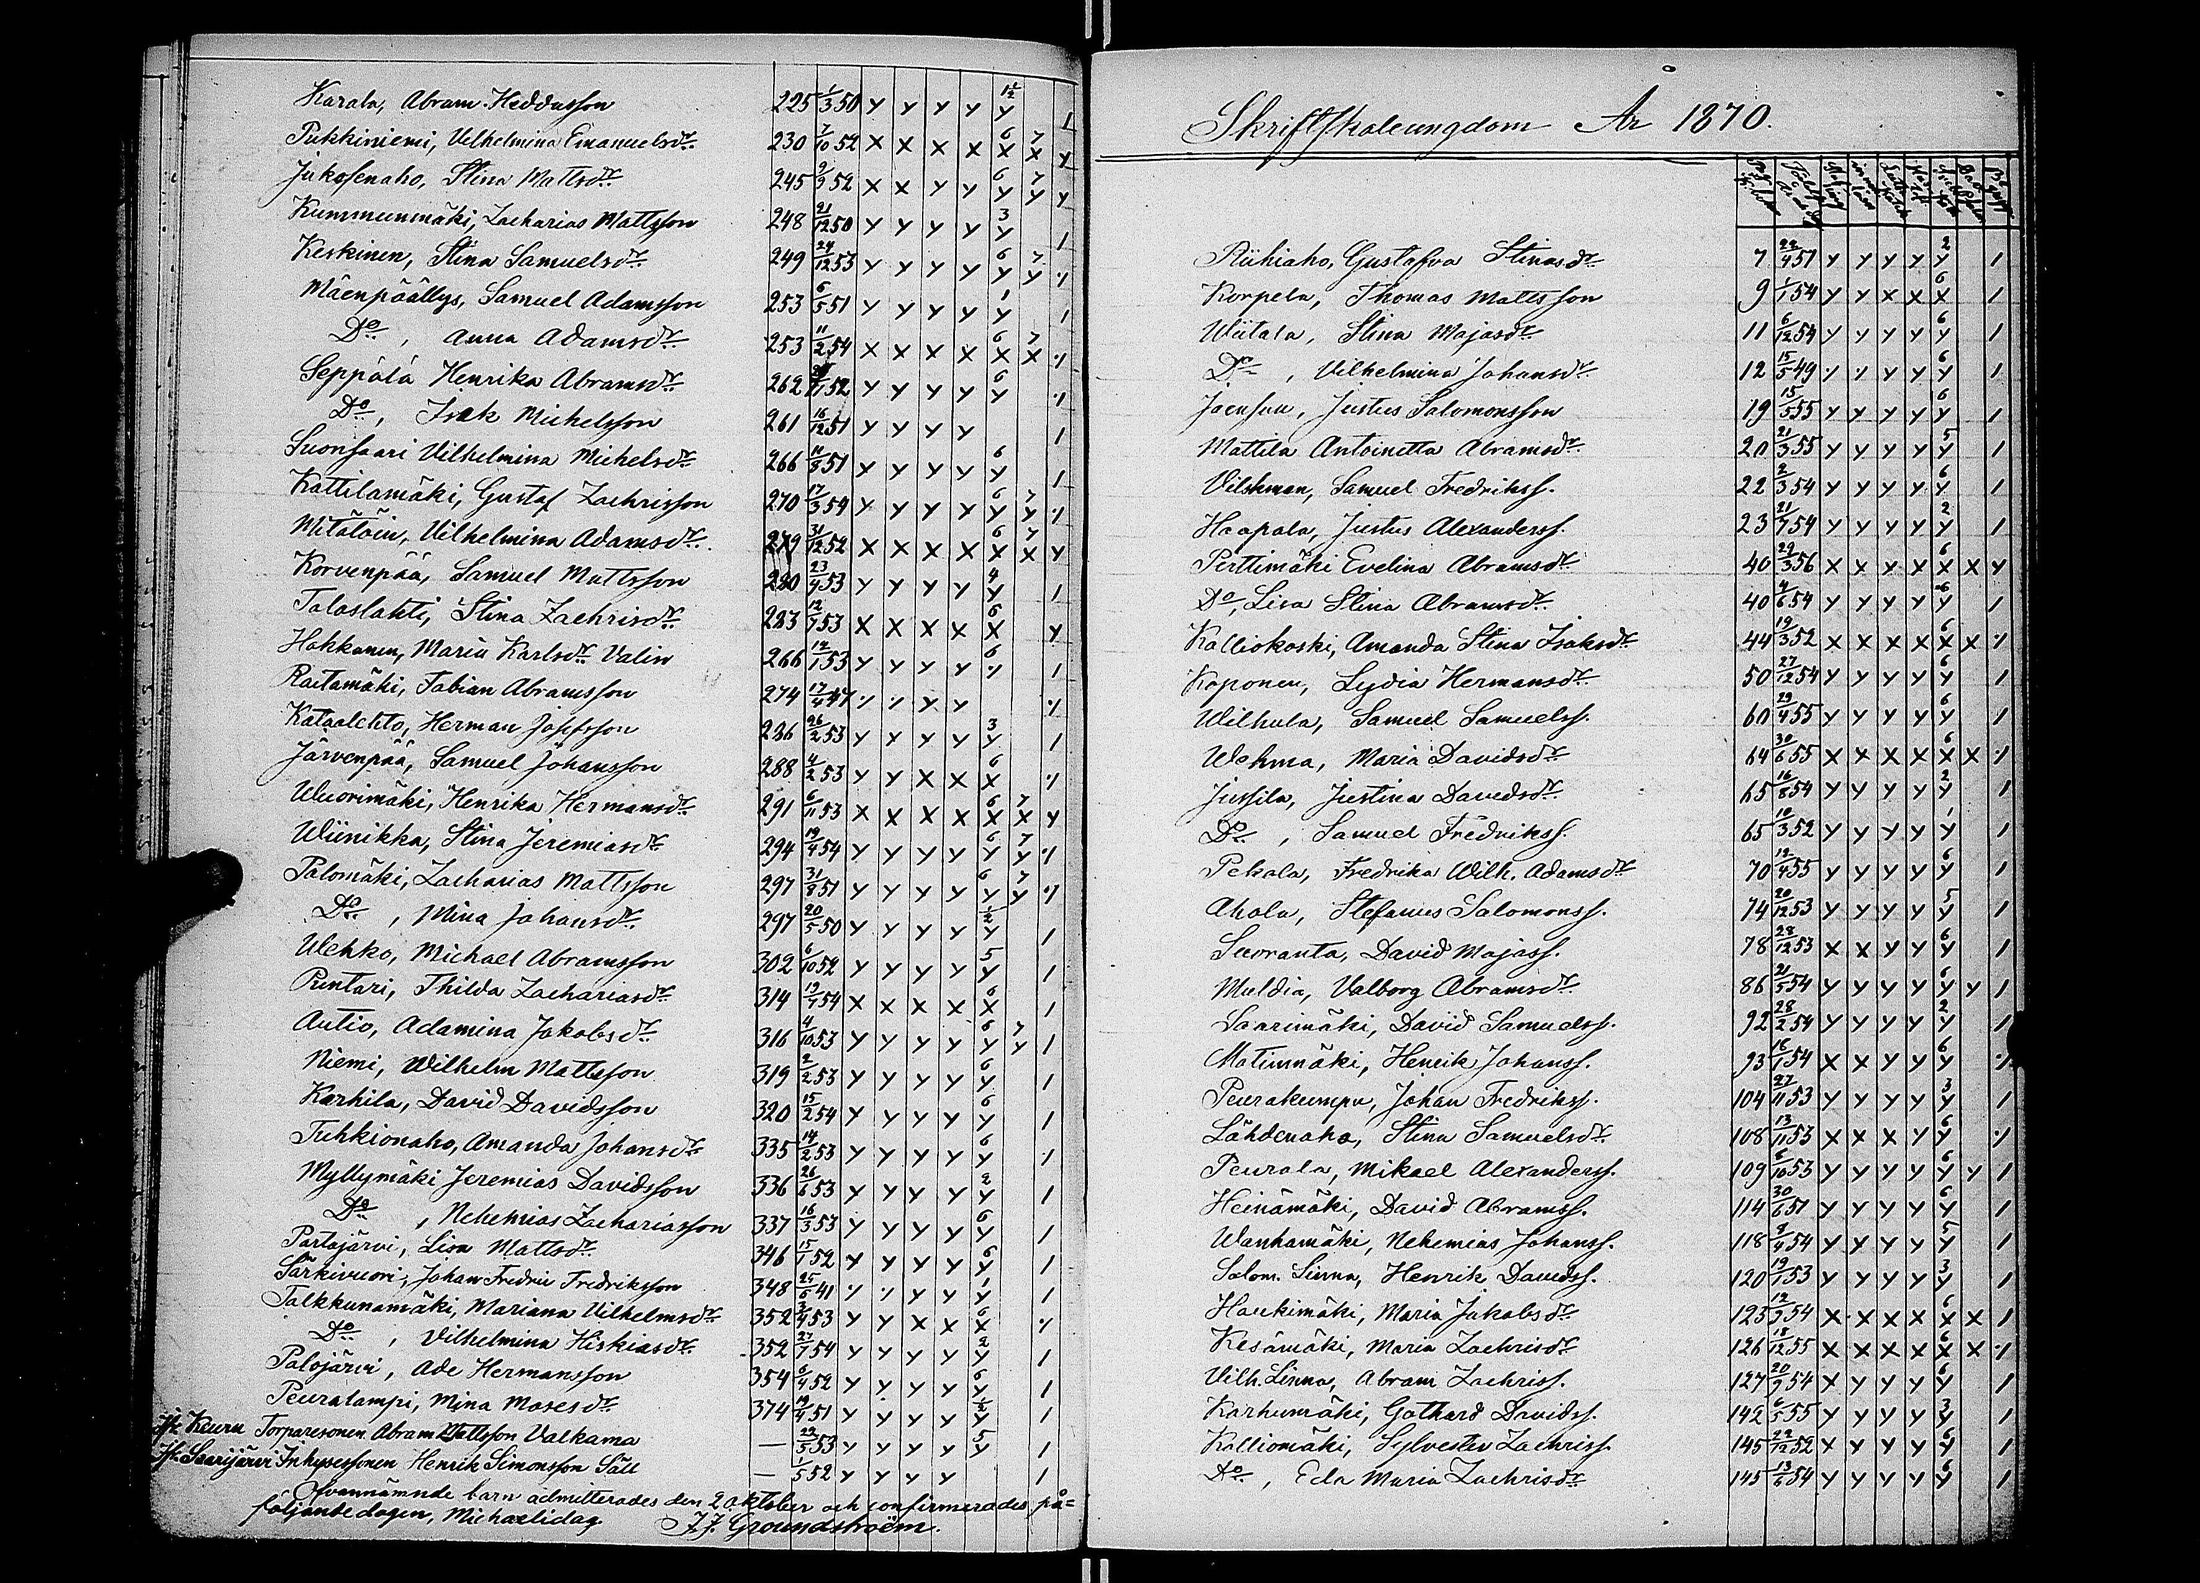 Karala, Abram Heddasson 225 1/3 50 y y y y 1½ y 1
Pukkiniemi, Vilhelmina Emanuelsdr. 230 7/10 52 x x x x 6 x 7 x y
Jukosenaho, Stina Mattsdr. 245 9/9 52 x x y y 6 y 7 y y
Kummunmäki, Zacharias Mattsson 248 21/12 50 y y y y 3 y 1
Keskinen, Stina Samuelsdr. 249 24/12 53 y y y y 6 y 7 y ·/·
Mäenpäällys, Samuel Adamsson 253 6/5 51 y y y y 1 y 1
Do, Anna Adamsdr. 253 11/2 54 x x x x 6 x 7 x ·/·
Seppälä Henrika Abramsdr. 262 52 y y y y 6 y ·/·
Do, Isak Michelsson 261 16/12 51 y y y y 1
Suonsaari Vilhelmina Michelsdr. 266 11/8 51 y y y y 6 y 1
Kattilamäki, Gustaf Zachrisson 270 17/3 54 y y y y 6 y 7 y ·/·
Mitälöin, Vilhelmina Adamsdr. 279 31/12 52 x x x x 6 x 7 x y
Korvenpää, Samuel Mattsson 280 23/9 53 y y y y 4 y 1
Talaslahti, Stina Zachrisdr. 283 12/7 53 x x x x 6 x y
Hakkanen, Maria Karlsdr. Valin 266 12/1 53 y y y y 6 ·/· 1
Raitamäki, Fabian Abramsson 274 17/4 47 ·/· ·/· y y ·/·
Katajalehto, Herman Josefsson 286 26/2 53 y y y y 3 y 1
Järvenpää, Samuel Johansson 288 4/2 53 y y x x 6 x ·/·
Wuorimäki, Henrika Hermansdr. 291 6/11 53 x x x x 6 x 7 x y
Wiinikka, Stina Jeremiasdr. 294 19/4 54 y y y y 6 y 7 y ·/·
Palomäki, Zacharias Mattsson 297 31/8 51 y y y y 6 y 7 y ·/·
Do, Mina Johansdr. 297 20/5 50 y y y y ½ y 1
Wehko, Michael Abramsson 302 6/10 52 y y y y 5 y 1
Rintari, Thilda Zachariasdr. 314 19/7 54 x x x x 6 x 1
Autio, Adamina Jakobsdr. 316 4/10 53 y y y y 6 y 7 y 1
Niemi, Wilhelm Mattsson 319 2/2 53 y y y y 6 y 1
Karhila, David Davidsson 320 15/2 54 y y y y 6 y 1
Tuhkionaho, Amanda Johansdr. 335 14/2 53 y y y y 6 y ·/·
Myllymäki Jeremias Davidsson 336 26/6 53 y y y y 2 y 1
Do, Nehemias Zachariasson 337 16/3 53 y y y y 6 y 1
Partajärvi, Lisa Mattsdr. 346 15/1 52 y y y y 6 y 1
Särkivuori, Johan Fredric Fredriksson 348 25/6 41 ·/· ·/· y y 1 y 1
Talkkunamäki, Mariana Vilhelmsdr. 352 3/4 53 y y x x 6 x ·/·
Do, Vilhelmina Hiskiasdr. 352 27/7 54 y y y y 2 y 1
Palojärvi, Ade Hermansson 354 6/4 52 y y y y 6 y 1
Peuralampi, Mina Mosesdr. 374 19/4 51 y y y y ½ y 1
fr. Keuru Torparesonen Abram Mattsson Valkama — 22/5 53 y y y y 5 y 1
fr. Saarijärvi Inhysessonen Henrik Simonsson Säll — 1/5 52 y y y y 1
Ofvannämnde barn admitterades den 2 oktober och confirmerades på=
följande dagen, Michaelidag. J. J. Groundstroëm.
Skriftskoleungdom År 1870.
Riihiaho, Gustafva Stinasdr. 7 22/4 51 y y y y 2 y 1
Korpela, Thomas Mattsson 9 1/1 54 y y x x 6 x 1
Wiitala, Stina Majasdr. 11 6/12 54 y y y y 6 y 1
Do, Vilhelmina Johansdr. 12 15/5 49 ·/· ·/· y y 6 y 1
Jaensuu, Justus Salomonsson 19 15/5 55 y y y y 6 y 1
Mattila Antoinetta Abramsdr. 20 21/3 55 y y y y 5 y 1
Vilskman, Samuel Fredrikss. 22 2/3 54 y y y y 6 y 1
Haapala, Justus Alexanderss. 23 21/7 54 y y y y 2 y 1
Perttimäki Evelina Abramsdr. 40 29/3 56 x x x x 6 x x y
Do, Lisa Stina Abramsdr. 40 4/6 54 y y y y 6 y 1
Kalliokoski, Amanda Stina Isaksdr. 44 19/3 52 x x x x 6 x x ·/·
Koponen, Lydia Hermansdr. 50 27/12 54 y y y y 6 y 1
Wilhula, Samuel Samuelss. 60 29/4 55 y y y y 6 y 1
Wehma, Maria Davidsdr. 64 30/6 55 x x x x 6 x x ·/·
Jussila, Justina Davidsdr. 65 16/8 54 y y y y 2 y 1
Do, Samuel Fredrikss. 65 10/3 52 y y y y 1 y 1
Pekala, Fredrika Wilh. Adamsdr. 70 12/4 55 y y y y 6 y 1
Ahola, Stefanus Salomonss. 74 20/12 53 y y y y 5 y 1
Suoranta, David Majass. 78 28/12 53 x x y y 6 y 1
Muldia, Valborg Abramsdr. 86 21/5 54 y y y y 6 y y 1
Saarimäki, David Samuelss. 92 28/2 54 y y y y 2 y 1
Matinmäki, Henrik Johanss. 93 18/1 54 x x y y 6 y ·/·
Peurakumpu, Johan Fredrikss. 104 27/11 53 y y y y 3 y 1
Lähdenaho, Stina Samuelsdr. 108 13/11 53 x x x y 6 y ·/·
Peurala, Mikael Alexanderss. 109 6/10 53 y y y y 6 y y 1
Heinämäki, David Abramss. 114 30/6 51 y y y y 6 y 1
Wanhamäki, Nehemias Johanss. 118 9/4 54 y y y y 5 y 1
Salom. Linna, Henrik Davidss. 120 19/1 53 y y y y 3 y 1
Haukimäki, Maria Jakobsdr. 123 12/9 54 x x x x 6 x x 1
Kesämäki, Maria Zachrisdr. 126 18/12 55 x x x x 6 x x ·/·
Vilh. Linna, Abram Zachriss. 127 20/9 54 x y y y 6 y 1
Karhumäki, Gothard Davidss. 142 6/5 55 y y y y 3 y 1
Kalliomäki, Sylvester Zachriss. 145 22/12 52 x y y y 6 y 1
Do, Eda Maria Zachrisdr. 145 13/6 54 y y y y 6 y 1